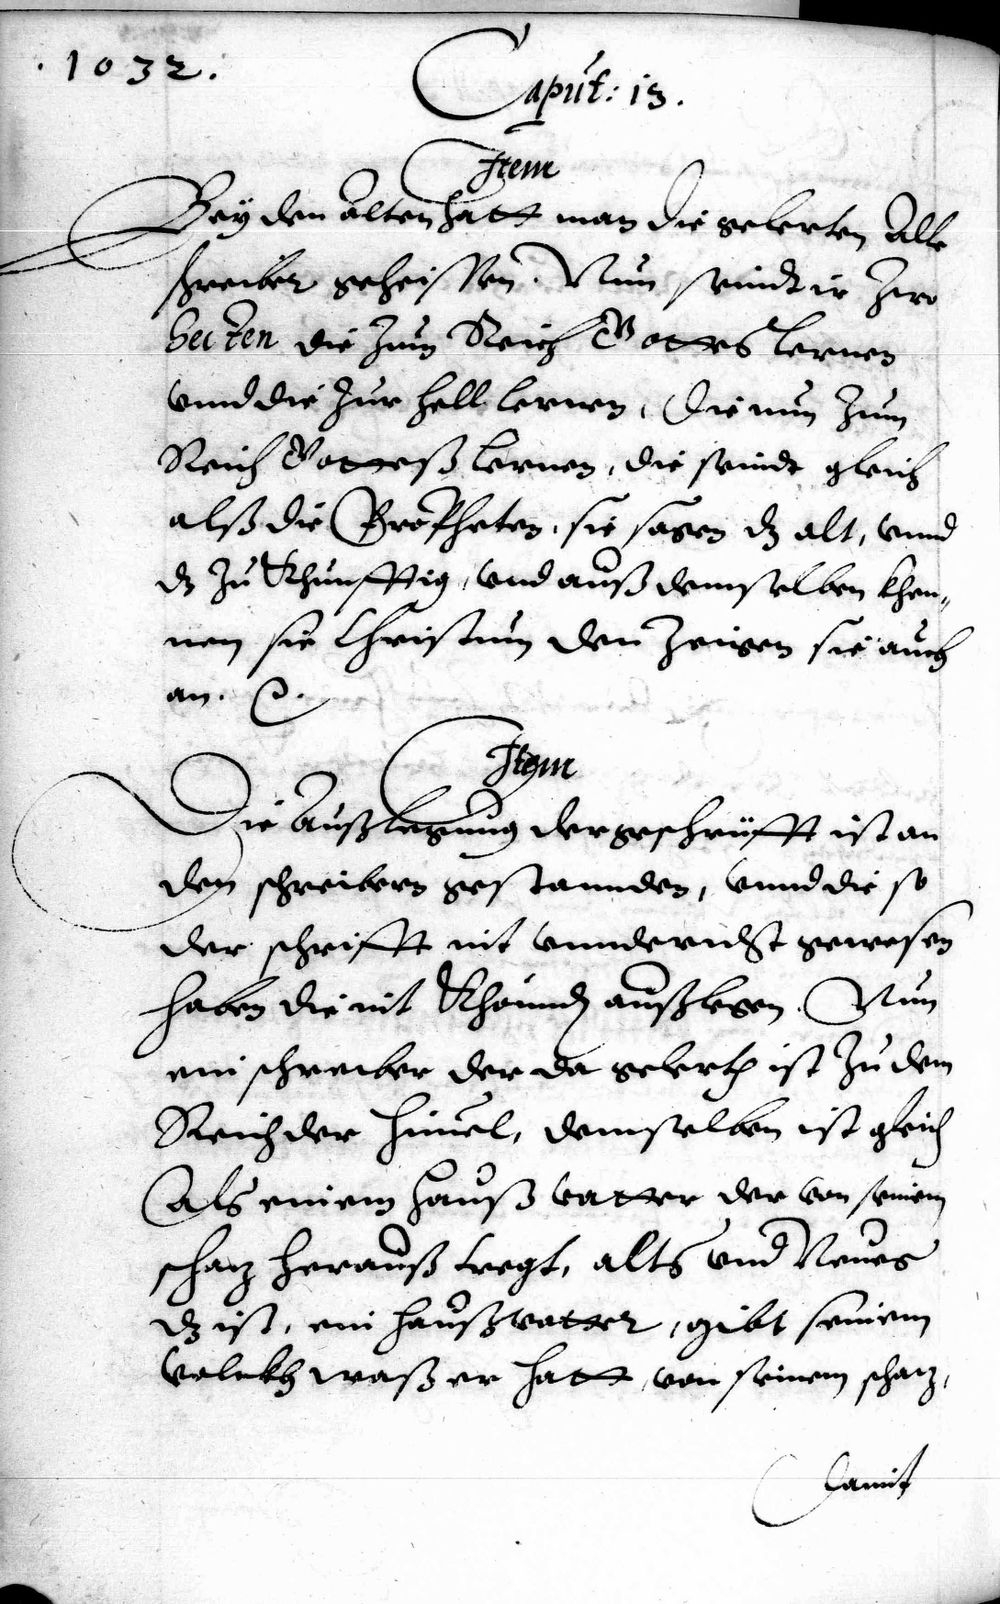 . 1032 .
Caput: 13.
Item
Bey den alten hatt man die gelerten Alle
schreiber geheissen. Nun seindt ir zwo
Secten die zum Reich Gottes lernen
vnnd die zur hell lernen, Die nun zum
Reich Gotteß lernen, die seindt gleich
alß die Propheten, sie sagen dz alt, vnnd
dz zu Khunfftig, vnd auß demselben khen-
nen sie Christum den zeigen sie auch
an. &.
Item
Die außlegung der geschrüfft ist an
den schreibern gestannden, vnnd die so
der schrifft nit vnndericht gewesen
haben die nit Khönnden außlegen. Nun
ein schreiber der da gelerth ist zu dem
Reich der himel, demselben ist gleich
Als einem hauß vatter der von seinem
schatz herauß tregt, alts vnd Neues
dz ist, ein haußvatter, gibt seinem
volckh waß er hatt, von seinem schatz,
Damit